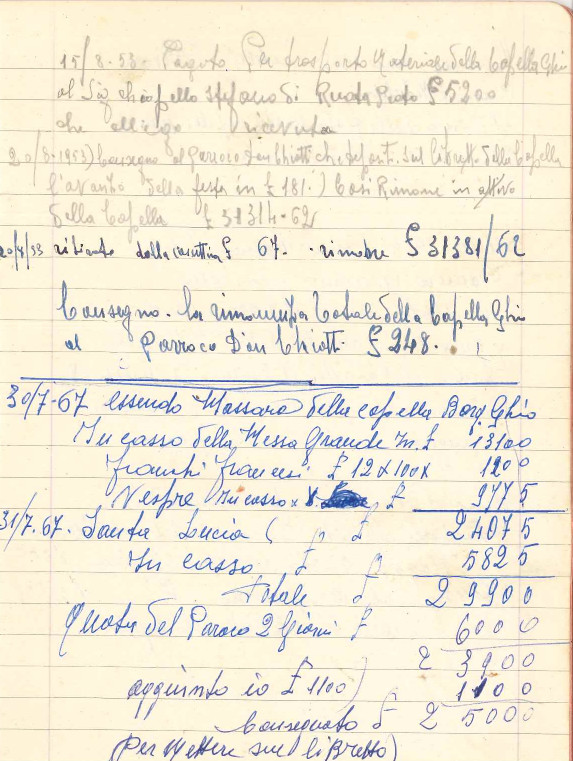 15/8-53- Pagato Per trasporto Materiale della Capella Ghio
al Sig Stefano di Ruata Prato £ 5200
che allego ricevuta
20/8-1953) Consegno al Parroco Don Chiotti sul libretto della Capella
l'avanzo della festa in £ 181.) Cosi Rimane in attivo
della Capella £ 31314-62
20/8/53 ritirato dalla cassettina £ 67. rimane £ 31381/62
Consegno. la rimanenza totale della Capella Ghio
al Parroco Don Chiotti £ 248.
30/7-67 essendo Massaro della capella Borg. Ghio
In casso della Messa Grande in £ 13100
franchi francesi £ 12 x 100 x 1200
Vespre in casso x £ 9775
31/7.67. Santa Lucia ( £ 24075
In casso £ 5825
Totale £ 29900
Quota del Paroco 2 Giorni £ 6000
23900
aggiunto io £ 1100) 1100
Consegnato £ 25000
(Per Mettere sul liBretto)